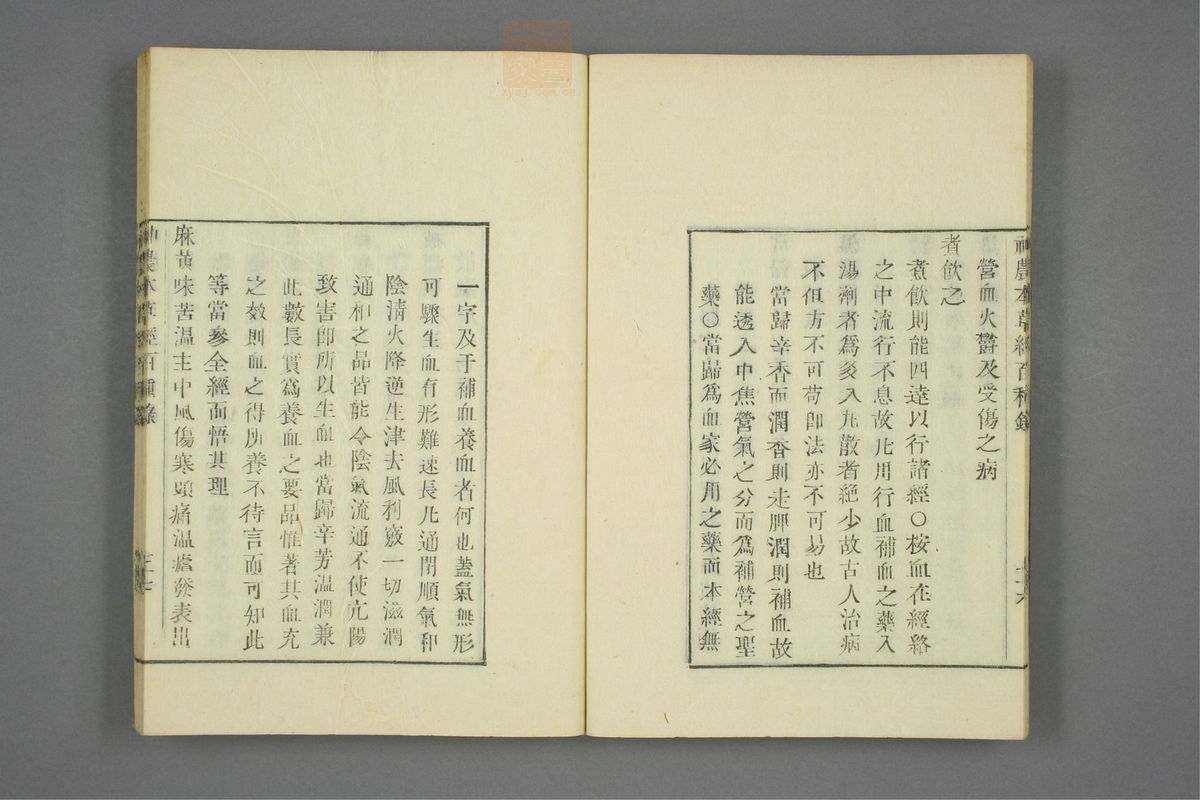 神農本草經百種錄
營血火鬱及受傷之病
煮飲之
煮飲則能四達以行諸經○按血在經絡
之中流行不息故凡用行血補血之藥入
湯劑者爲多入丸散者絶少故古人治病
不但方不可苟卽法亦不可易也
當歸辛香而潤香則走脾潤則補血故
能透入中焦營氣之分而爲補營之聖
藥○當歸爲血家必用之藥而本經無
一字及于補血養血者何也蓋氣無形
可驟生血有形難速長凡通閉順氣和
陰清火降逆生津去風利竅一切滋潤
通和之品皆能令陰氣流通不使亢陽
致害卽所以生血也當歸辛芳温潤兼
此數長實爲養血之要品惟著其血充
之效則血之得所養不待言而可知此
等當參全經而悟其理
麻黄味苦温主中風傷寒頭痛温瘧發表出
神農本草經百種錄
zysj.com.cn